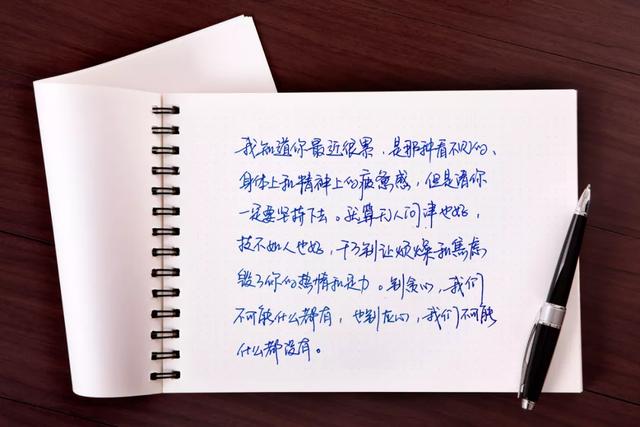 我知道你最近很累，是那种看不见的、
身体上和精神上的疲惫感，但是请你
一定要坚持下去。就算无人问津也好，
技不如人也好，千万别让烦躁和焦虑
毁了你的热情和定力。别贪心，我们
不可能什么都有，也别灰心，我们不可能
什么都没有。